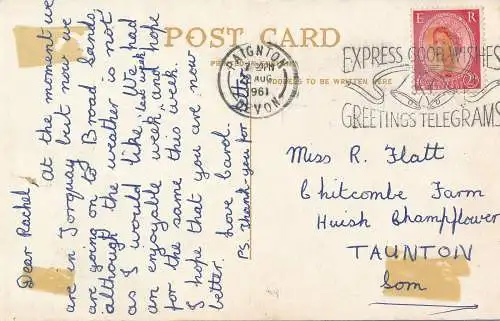 POST CARD
PRINTED IN ENGLAND
ADDRESS TO BE WRITTEN HERE
PAIGNTON
AUG
1961
DEVON
E R
EXPRESS GOOD WISHES
GREETINGS TELEGRAMS
Dear Rachel,
At the moment we
are in Torquay but now we
are going on to Broad Sands,
although the weather is not
as I would like. We had
an enjoyable week last week and hope
for the same this week.
I hope that you are now
better.
love Carol.
PS. Thank-you for
Miss R. Flatt
Chitcombe Farm
Huish Champflower
TAUNTON
Som